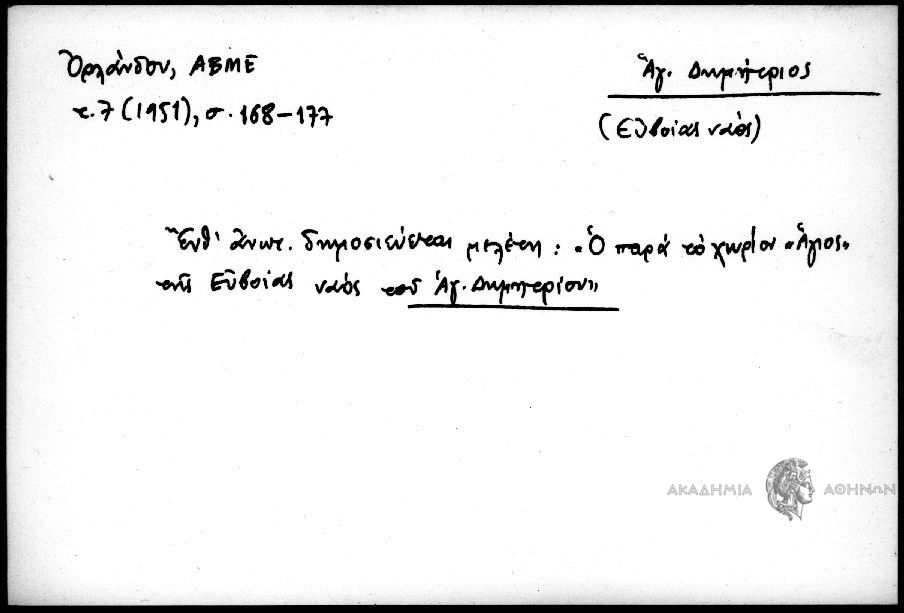 Ὀρλάνδου, ΑΒΜΕ
τ. 7 (1951), σ. 168-177
Ἅγ. Δημήτριος
(Εὐβοίας ναὸς)
Ἔνθ' ἄνωτ. δημοσιεύεται μελέτη: «Ὁ παρὰ τὸ χωρίον «Ἅγιος»
τῆς Εὐβοίας ναὸς τοῦ Ἁγ. Δημητρίου»
ΑΚΑΔΗΜΙΑ ΑΘΗΝΩΝ